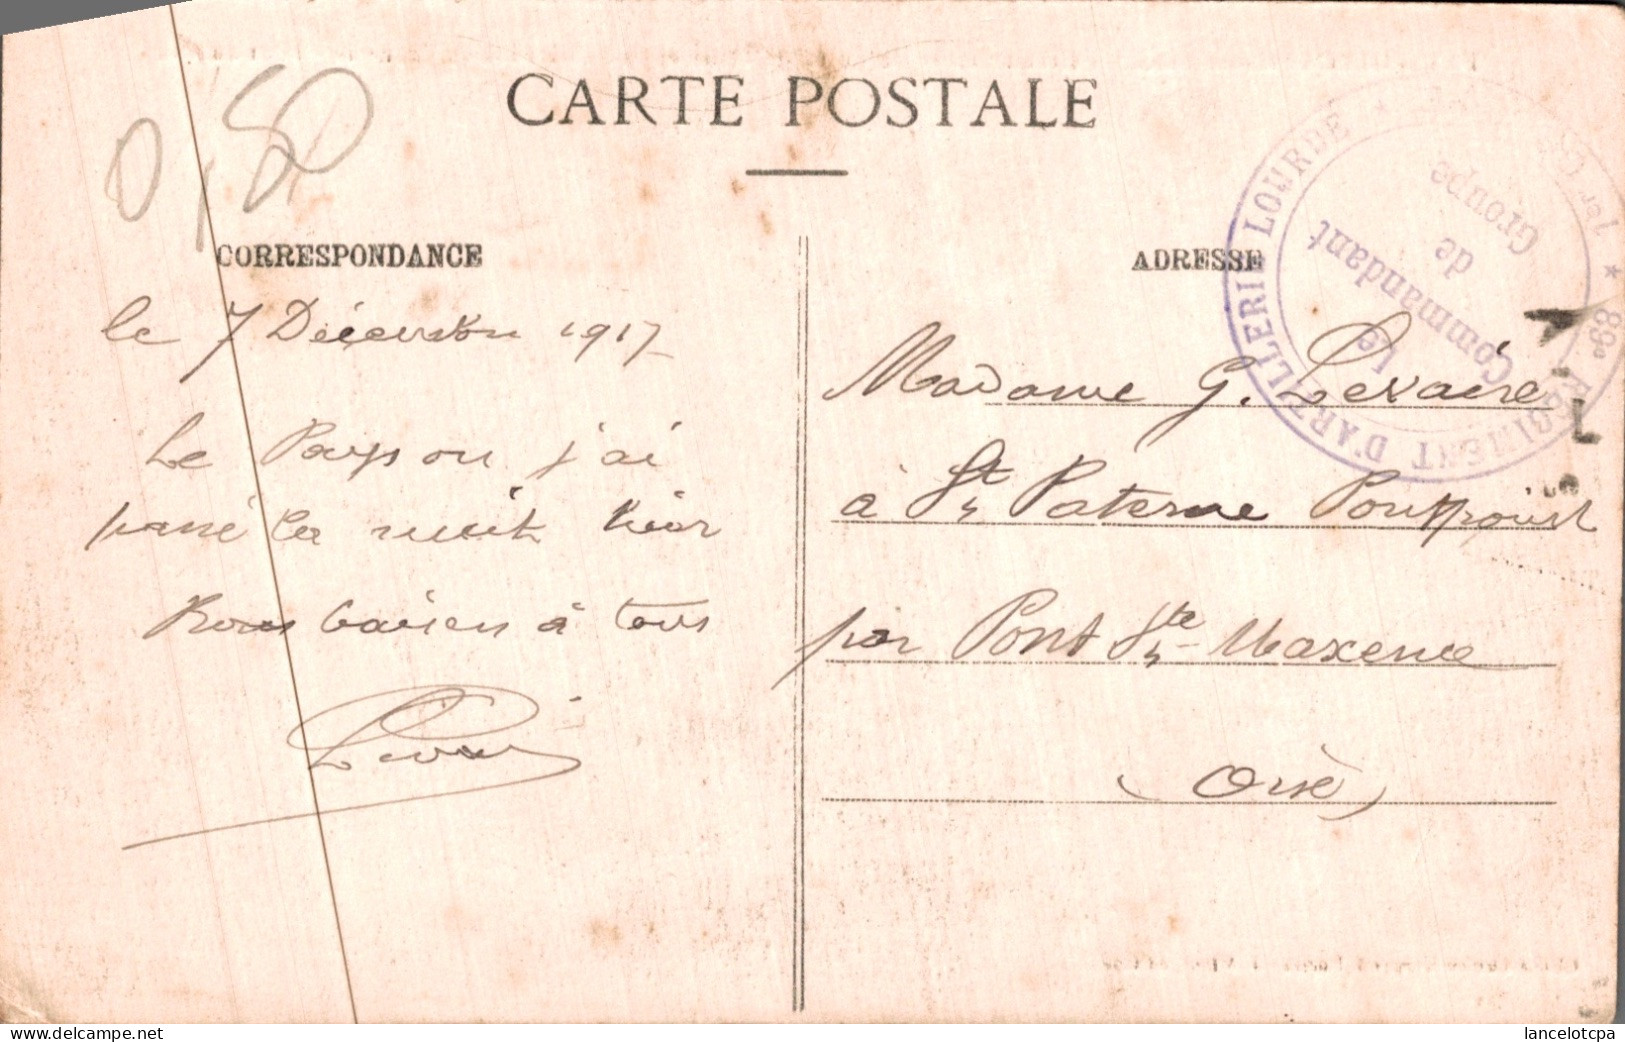 CARTE POSTALE
0,50
CORRESPONDANCE
le 7 Décembre 1917
Le Pays ou j'ai
passé la nuit hier
Bons baisers à tous
ADRESSE
Madame G. Levaire
à St Paterne Pontpoint
par Pont Ste Maxence
(Oise)
89e RÉGIMENT D'ARTILLERIE LOURDE
Le
Commandant
de
Groupe
www.delcampe.net
lancelotcpa